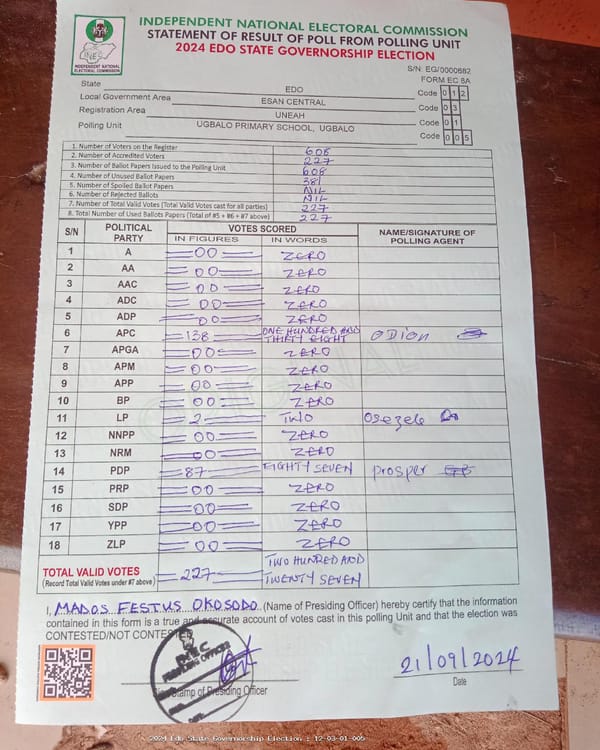 INDEPENDENT NATIONAL ELECTORAL COMMISSION
STATEMENT OF RESULT OF POLL FROM POLLING UNIT
2024 EDO STATE GOVERNORSHIP ELECTION
INEC
INDEPENDENT NATIONAL
ELECTORAL COMMISSION
S/N: EG/0000682
FORM EC 8A
State EDO Code 0 1 2
Local Government Area ESAN CENTRAL Code 0 3
Registration Area UNEAH Code 0 1
Polling Unit UGBALO PRIMARY SCHOOL, UGBALO Code 0 0 5
1. Number of Voters on the Register 608
2. Number of Accredited Voters 227
3. Number of Ballot Papers Issued to the Polling Unit 608
4. Number of Unused Ballot Papers 381
5. Number of Spoiled Ballot Papers NIL
6. Number of Rejected Ballots NIL
7. Number of Total Valid Votes (Total Valid Votes cast for all parties) 227
8. Total Number of Used Ballots Papers (Total of #5 + #6 + #7 above) 227
S/N POLITICAL PARTY VOTES SCORED NAME/SIGNATURE OF POLLING AGENT
IN FIGURES IN WORDS
1 A 00 ZERO
2 AA 00 ZERO
3 AAC 00 ZERO
4 ADC 00 ZERO
5 ADP 00 ZERO
6 APC 138 ONE HUNDRED AND THIRTY EIGHT ODION
7 APGA 00 ZERO
8 APM 00 ZERO
9 APP 00 ZERO
10 BP 00 ZERO
11 LP 2 TWO Osezele
12 NNPP 00 ZERO
13 NRM 00 ZERO
14 PDP 87 EIGHTY SEVEN prosper
15 PRP 00 ZERO
16 SDP 00 ZERO
17 YPP 00 ZERO
18 ZLP 00 ZERO
TOTAL VALID VOTES 227 TWO HUNDRED AND TWENTY SEVEN
(Record Total Valid Votes under #7 above)
I, MADOS FESTUS OKOSODO (Name of Presiding Officer) hereby certify that the information
contained in this form is a true and accurate account of votes cast in this polling Unit and that the election was
CONTESTED/NOT CONTESTED
INEC
PRESIDING OFFICER
Stamp of Presiding Officer
21/09/2024
Date
2024 Edo State Governorship Election : 12-03-01-005